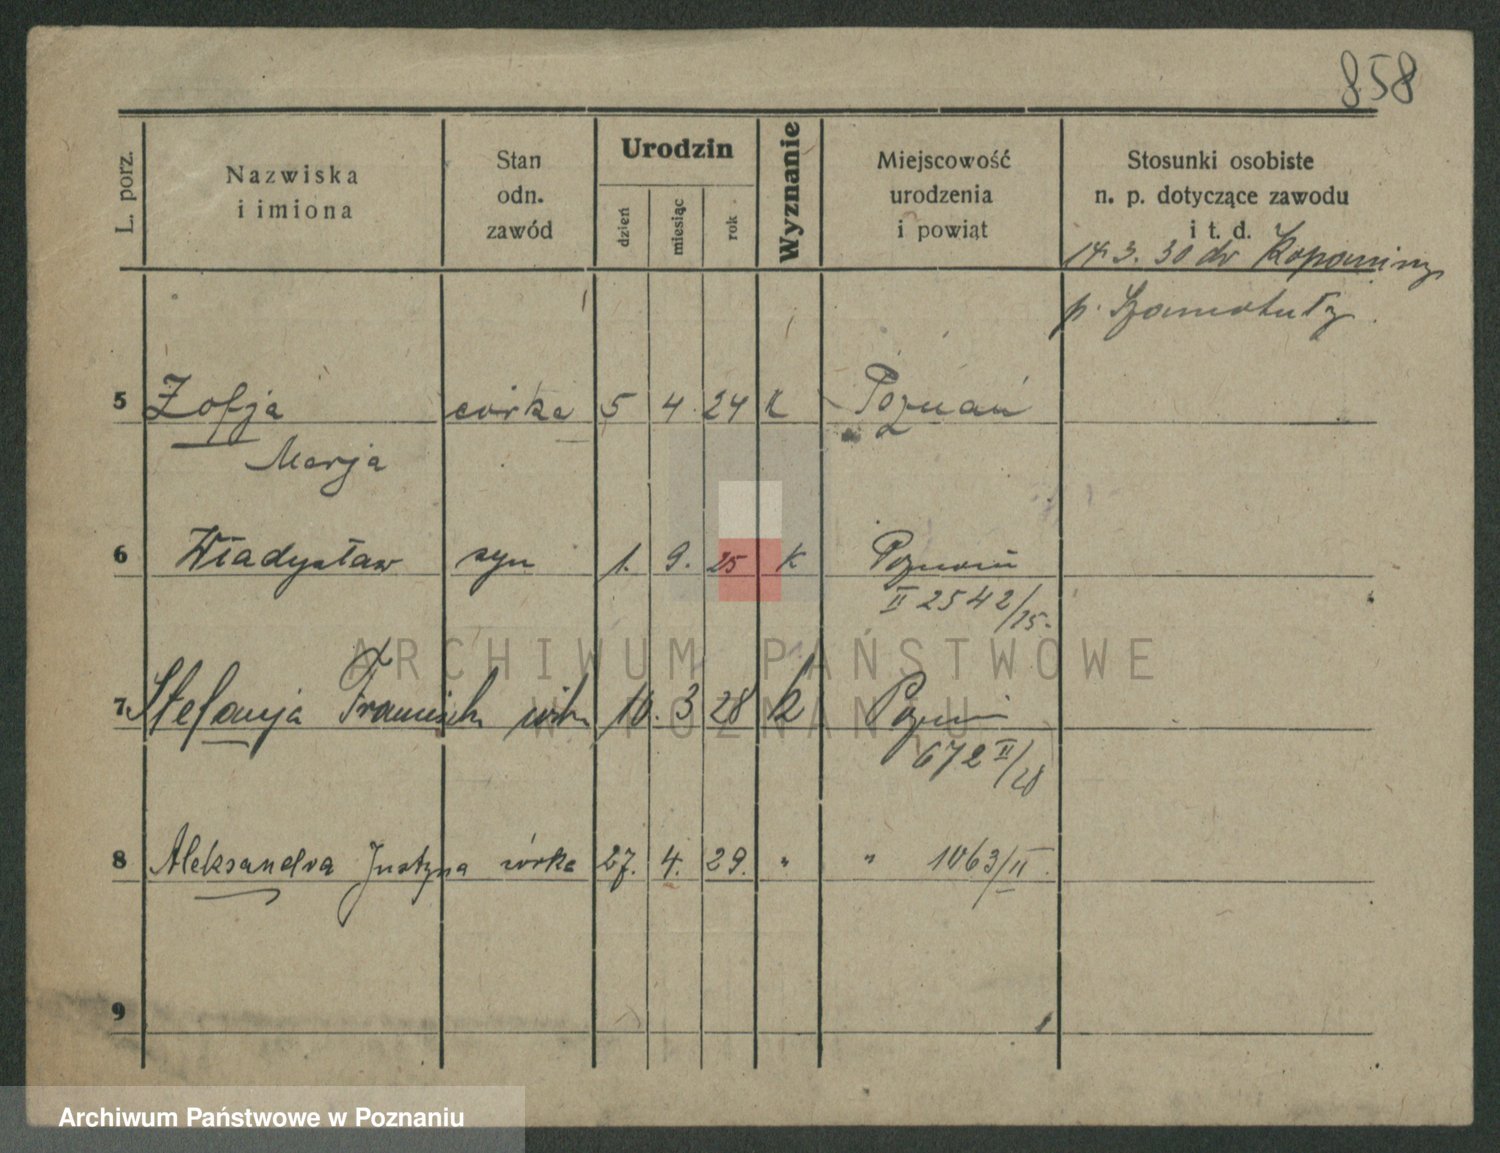 858
L. porz.
Nazwiska
i imiona
Stan
odn.
zawód
Urodzin
dzień
miesiąc
rok
Wyznanie
Miejscowość
urodzenia
i powiąt
Stosunki osobiste
n. p. dotyczące zawodu
i t. d.
3. 30 do
p. Szamotuły
5 Zofja córka 5 4 24 K Poznań
Marja
6 Władysław syn 1. 9. 25 K Poznań
II 2542/25.
7 Stefanja córka 3 28 k Poznań
672 II/28
8 Aleksandra Justyna córka 27. 4. 29. " " 1063/II
9
ARCHIWUM PAŃSTWOWE
W POZNANIU
Archiwum Państwowe w Poznaniu